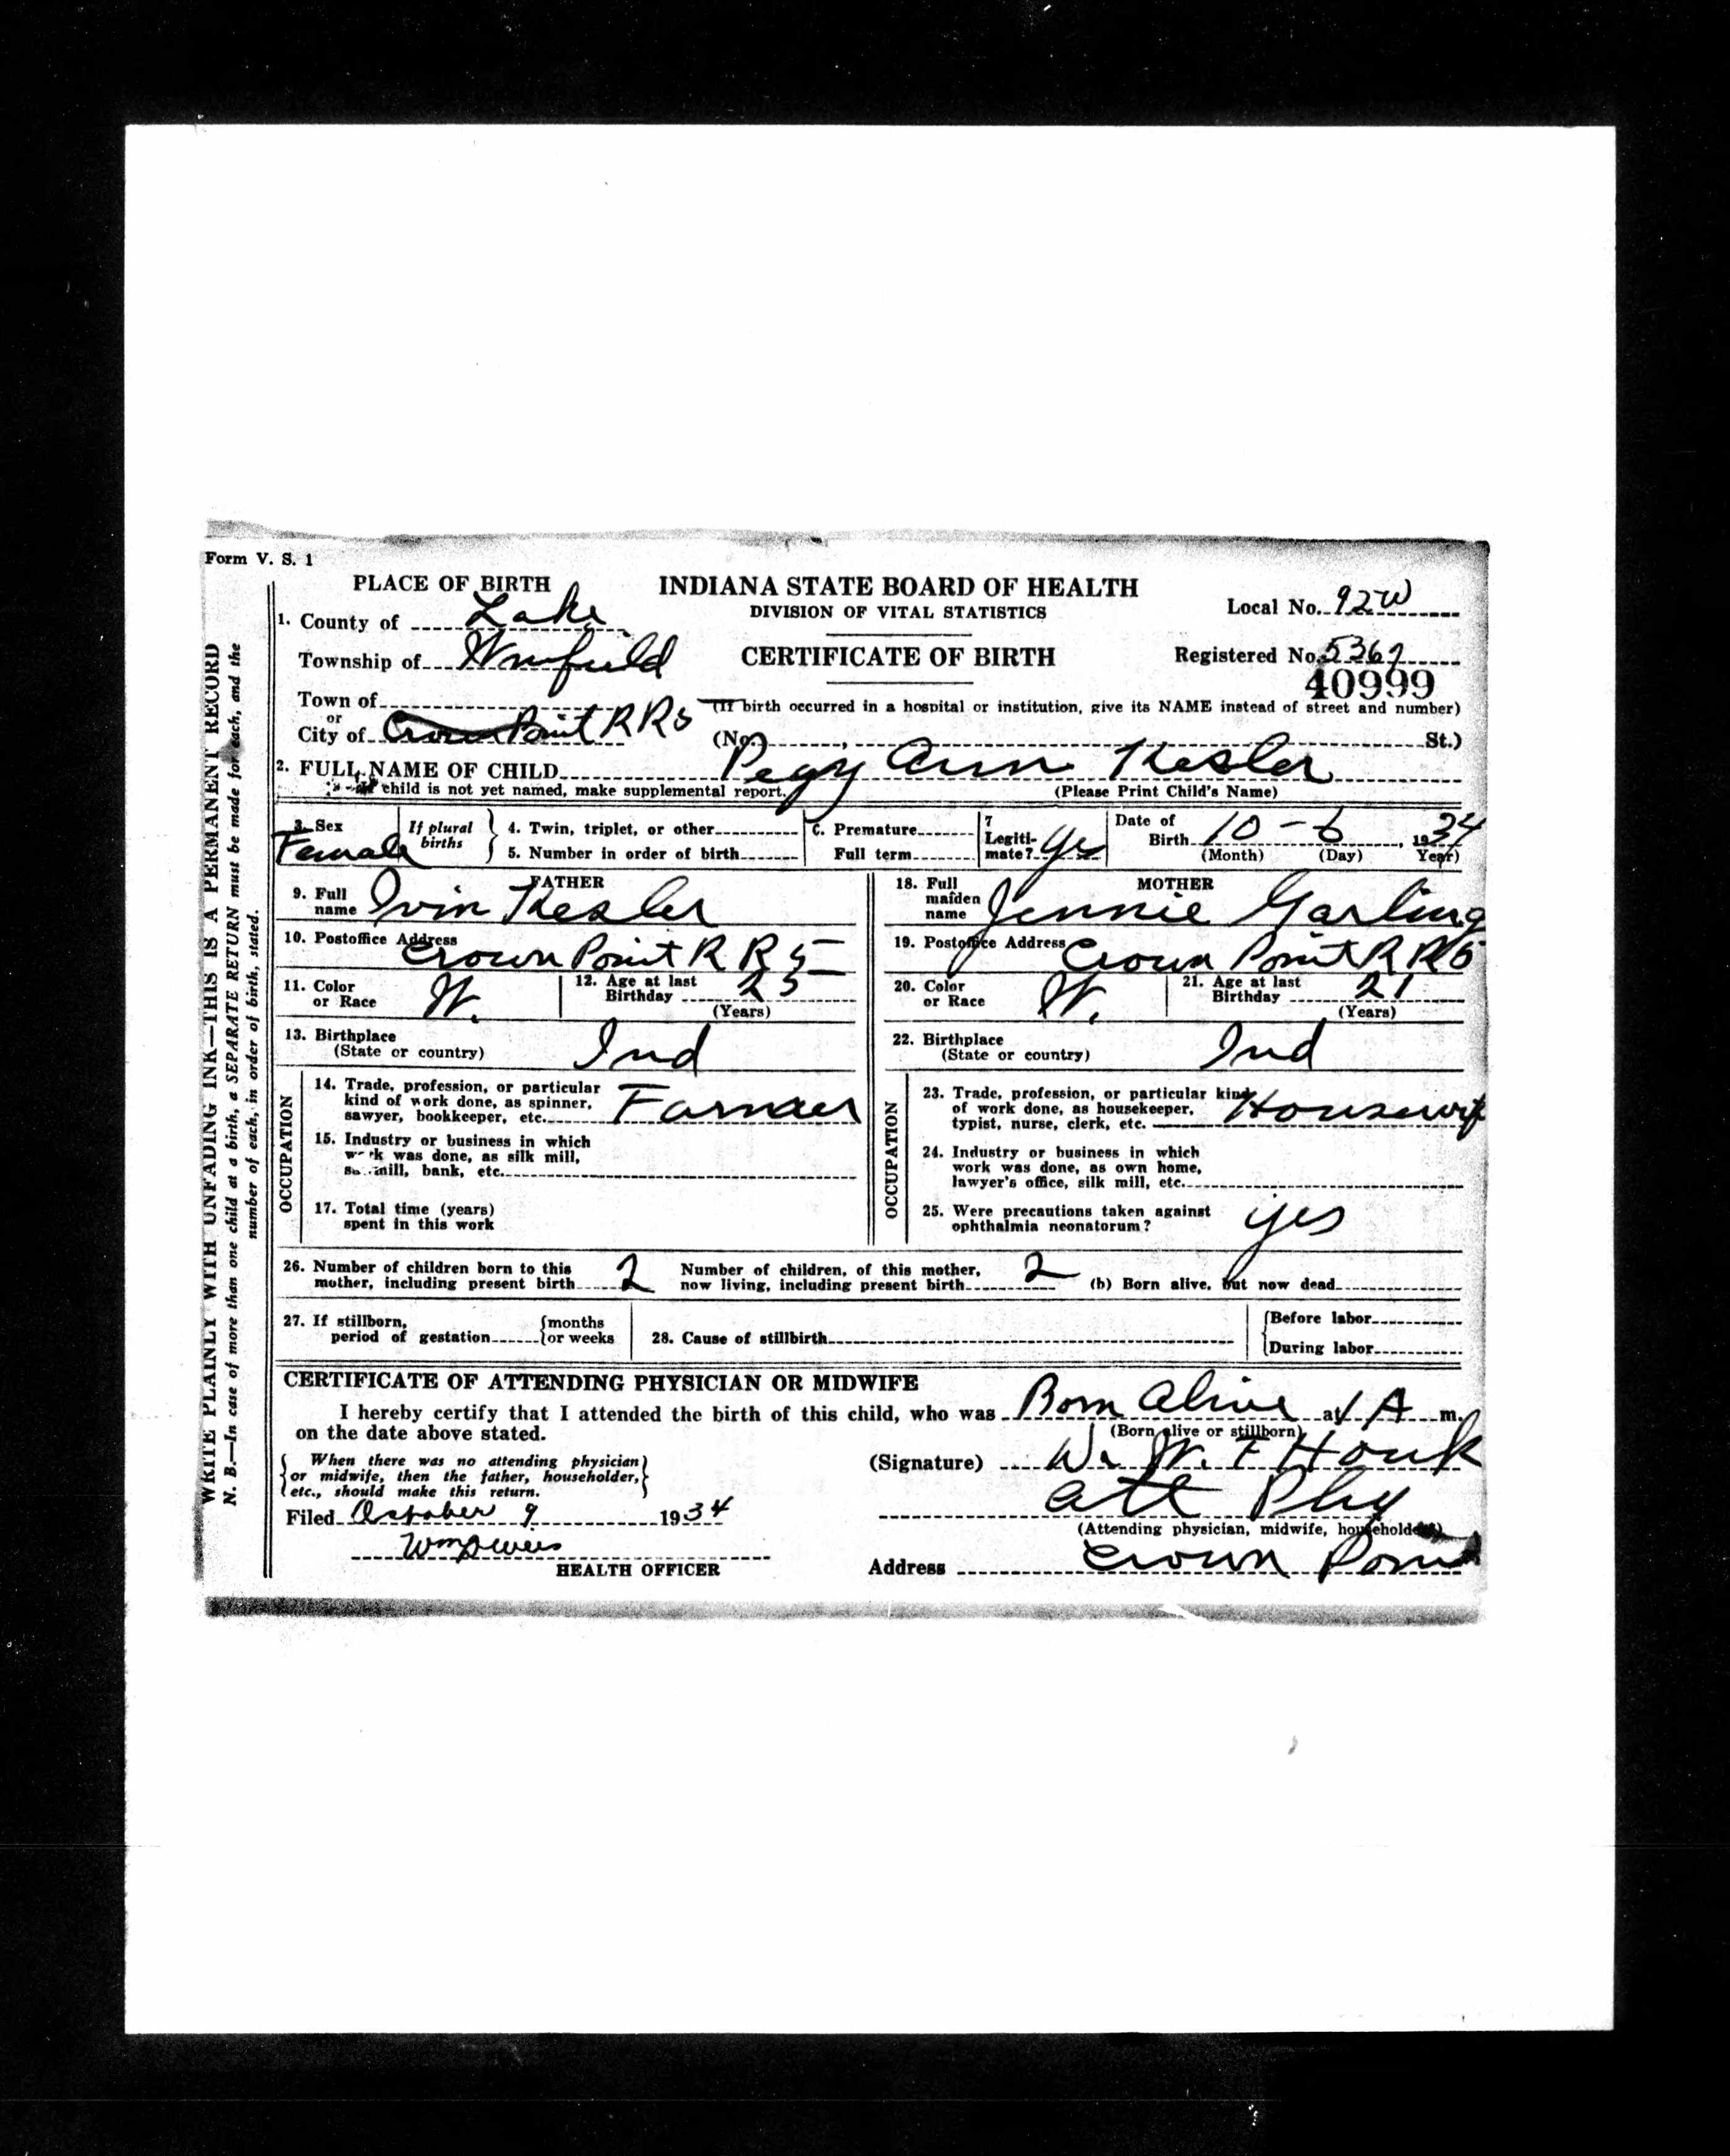 Form V. S. 1
PLACE OF BIRTH
INDIANA STATE BOARD OF HEALTH
DIVISION OF VITAL STATISTICS
CERTIFICATE OF BIRTH
Local No. 92W
Registered No. 5367
40999
1. County of Lake
Township of Winfield
Town of
or
City of Crown Point R R 5
(If birth occurred in a hospital or institution, give its NAME instead of street and number)
(No. , St.)
2. FULL NAME OF CHILD Pegy Ann Kesler
child is not yet named, make supplemental report. (Please Print Child's Name)
3. Sex Female
If plural births
4. Twin, triplet, or other
5. Number in order of birth
6. Premature
Full term
7 Legiti-
mate? Yes
Date of
Birth 10 - 6, 1934
(Month) (Day) Year)
FATHER
9. Full
name Ivin Kesler
10. Postoffice Address
Crown Point R R 5
11. Color
or Race W.
12. Age at last
Birthday 25
(Years)
13. Birthplace
(State or country) Ind
OCCUPATION
14. Trade, profession, or particular
kind of work done, as spinner,
sawyer, bookkeeper, etc. Farmer
15. Industry or business in which
work was done, as silk mill,
sawmill, bank, etc.
17. Total time (years)
spent in this work
MOTHER
18. Full
maiden
name Jennie Garling
19. Postoffice Address Crown Point R R 5
20. Color
or Race W.
21. Age at last
Birthday 21
(Years)
22. Birthplace
(State or country) Ind
OCCUPATION
23. Trade, profession, or particular kind
of work done, as housekeeper,
typist, nurse, clerk, etc. Housewif
24. Industry or business in which
work was done, as own home,
lawyer's office, silk mill, etc.
25. Were precautions taken against
ophthalmia neonatorum? yes
26. Number of children born to this
mother, including present birth 2
Number of children, of this mother,
now living, including present birth 2
(b) Born alive, but now dead
27. If stillborn,
period of gestation {months
{or weeks
28. Cause of stillbirth
{Before labor
{During labor
CERTIFICATE OF ATTENDING PHYSICIAN OR MIDWIFE
I hereby certify that I attended the birth of this child, who was Born Alive at 1 A m.
on the date above stated. (Born alive or stillborn)
{When there was no attending physician
or midwife, then the father, householder,
etc., should make this return.}
(Signature) W. W. F Houk
Att Phy
(Attending physician, midwife, householder)
Filed October 9 1934
HEALTH OFFICER
Address Crown Point
WRITE PLAINLY WITH UNFADING INK—THIS IS A PERMANENT RECORD
N. B.—In case of more than one child at a birth, a SEPARATE RETURN must be made for each, and the
number of each, in order of birth, stated.